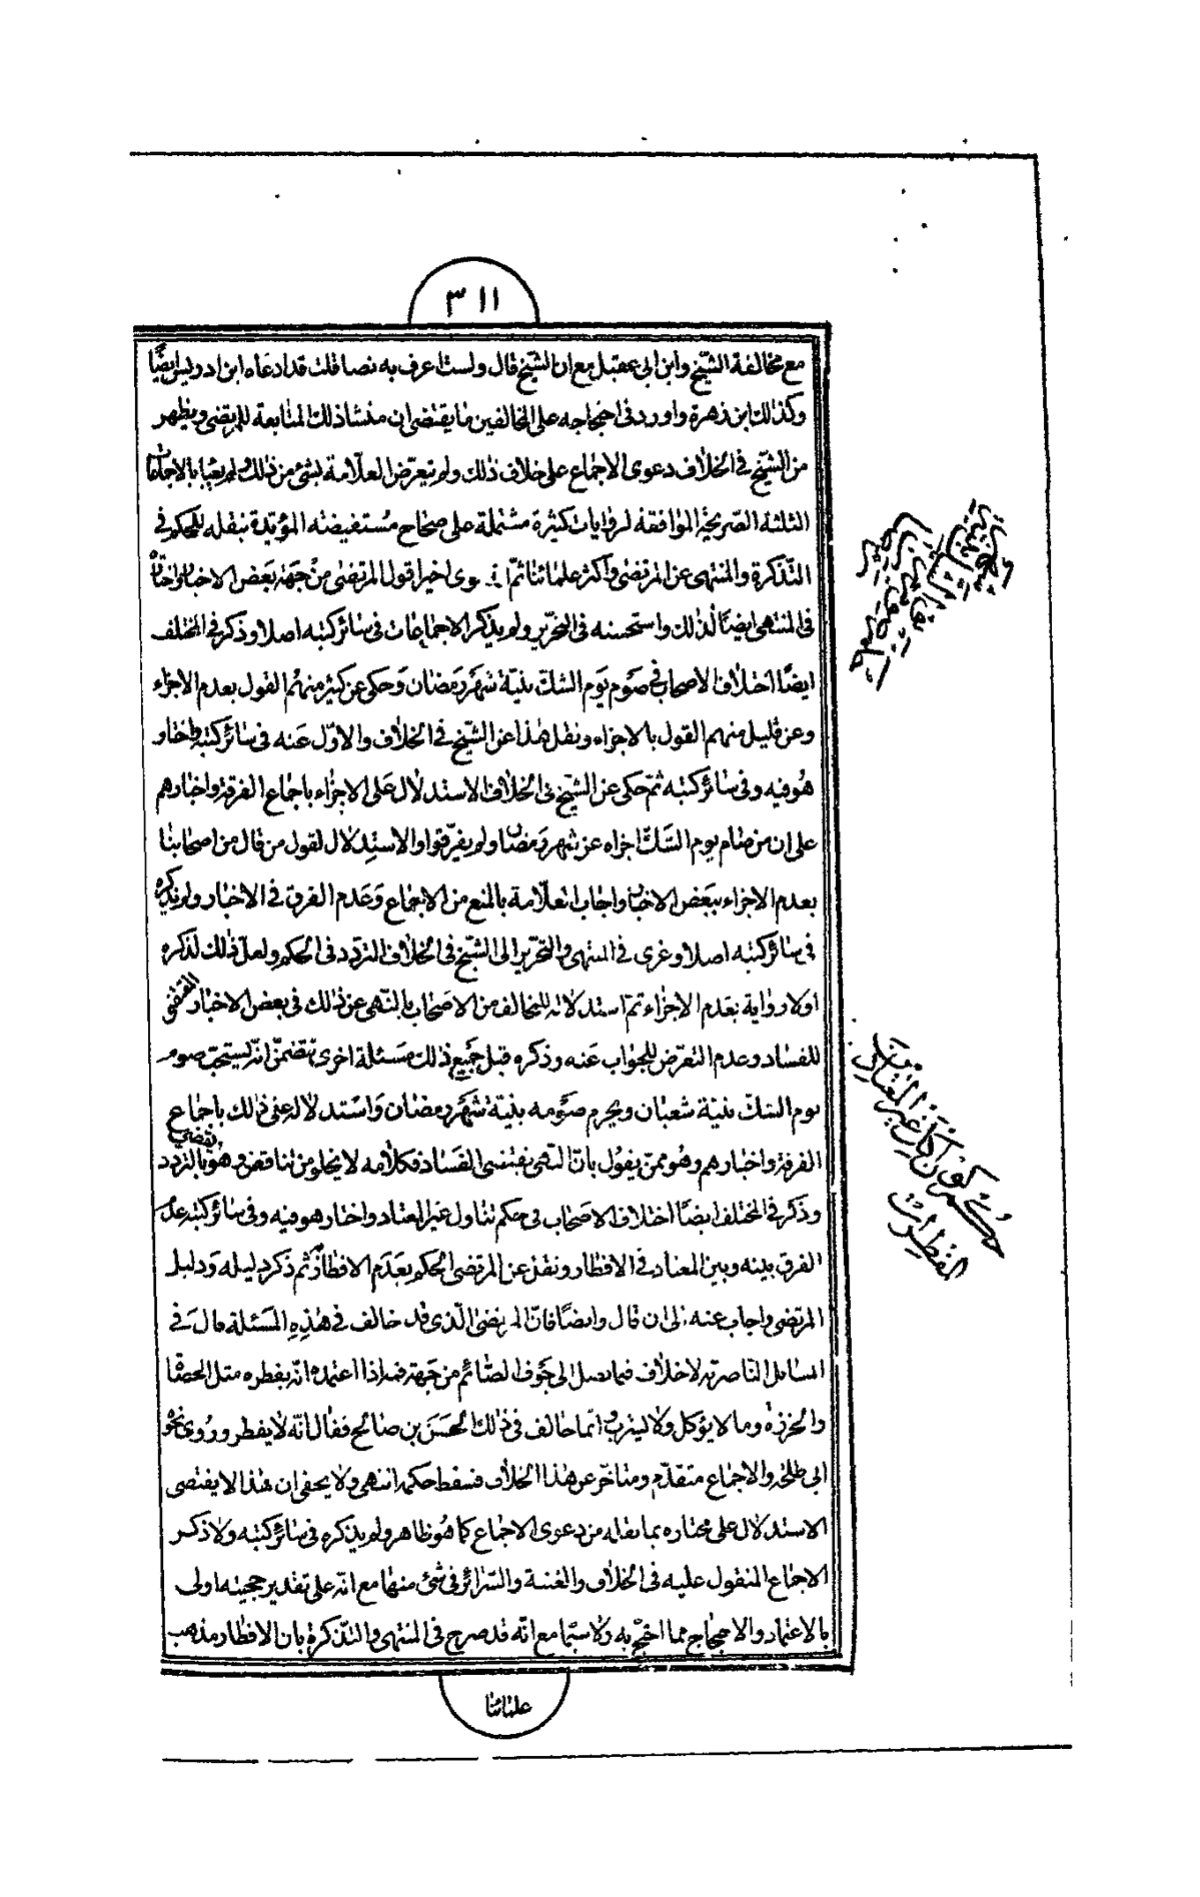 ٣١١
مع مخالفة الشيخ وابن ابي عقيل مع ان الشيخ قال ولست اعرف به نصا قلت قد ادعاه ابن ادريس ايضًا
وكذلك ابن زهرة واورد فى احتجاجه على المخالفين ما يقتضى ان منشا ذلك المتابعة للمرتضى ويظهر
من الشيخ فى الخلاف دعوى الاجماع على خلاف ذلك ولم يتعرض العلامة لشئ من ذلك ولم يعبا بالاجماعات
الثلثة الصريحة الموافقة لروايات كثيرة مشتملة على صحاح مستفيضة المؤيدة بنقله للحكم فى
التذكرة والمنتهى عن المرتضى واكثر علمائنا ثم قوى اخيرا قول المرتضى من جهة بعض الاخبار واختاره
فى المنتهى ايضًا لذلك واستحسنه فى التحرير ولم يذكر الاجماعات فى سائر كتبه اصلا وذكر فى المختلف
ايضًا اختلاف الاصحاب فى صوم يوم الشك بنية شهر رمضان وحكى عن كثير منهم القول بعدم الاجزاء
وعن قليل منهم القول بالاجزاء ونقل هذا عن الشيخ فى الخلاف والاول عنه فى سائر كتبه واختار
هو فيه وفى سائر كتبه ثم حكى عن الشيخ فى الخلاف الاستدلال على الاجزاء باجماع الفرقة واخبارهم
على ان من صام يوم الشك اجزاه عن شهر رمضان ولم يفرقوا والاستدلال لقول من قال من اصحابنا
بعدم الاجزاء ببعض الاخبار واجاب العلامة بالمنع من الاجماع وعدم الفرق فى الاخبار ولم يذكره
فى سائر كتبه اصلا وعزى فى المنتهى والتحرير الى الشيخ فى الخلاف التردد فى الحكم ولعل ذلك لذكره
اولا رواية بعدم الاجزاء ثم استدلاله للمخالف من الاصحاب بالنهى عن ذلك فى بعض الاخبار المقتضى
للفساد وعدم التعرض للجواب عنه وذكره قبل جميع ذلك مسئلة اخرى تتضمن انه يستحب صوم
يوم الشك بنية شعبان ويحرم صومه بنية شهر رمضان واستدلاله على ذلك باجماع
الفرقة واخبارهم وهو ممن يقول بان النهى يقتضى الفساد فكلامه لا يخلو من تناقض وهو يقضي بالتردد
وذكر فى المختلف ايضًا اختلاف الاصحاب فى حكم تناول غير المعتاد واختار هو فيه وفى سائر كتبه عدم
الفرق بينه وبين المعتاد فى الافطار ونقل عن المرتضى الحكم بعدم الافطار ثم ذكر دليله ودليل
المرتضى واجاب عنه الى ان قال وايضًا فان المرتضى الذى قد خالف فى هذه المسئلة قال فى
المسائل الناصرية لا خلاف فيما يصل الى جوف الصائم من جهة فمه اذا اعتمده انه يفطره مثل الحصا
والخرزة وما لا يؤكل ولا يشرب وانما خالف فى ذلك الحسن بن صالح فقال انه لا يفطر وروى نحوه
ابى طلحة والاجماع متقدم ومتاخر عن هذا الخلاف فسقط حكمه انتهى ولا يخفى ان هذا لا يقتضى
الاستدلال على مختاره بما نقله من دعوى الاجماع كما هو ظاهر ولم يذكره فى سائر كتبه ولا ذكر
الاجماع المنقول عليه فى الخلاف والغنية والسرائر فى شئ منها مع انه على تقدير حجيته اولى
بالاعتماد والاحتجاج مما احتج به ولا سيما مع انه قد صرح فى المنتهى والتذكرة بان الافطار مذهب
علمائنا
حكم كون اكل غير المعتاد من
المفطرات